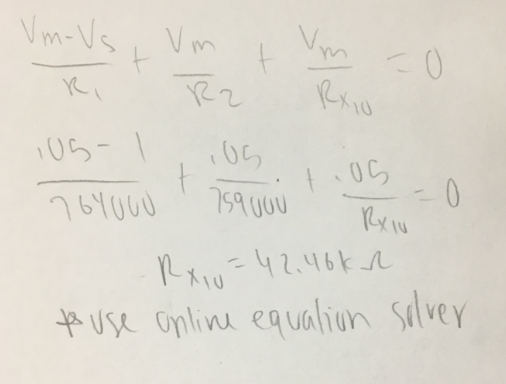 Vm-Vs/R1 + Vm/R2 + Vm/Rx10 = 0
.05-1/764000 + .05/759000 + .05/Rx10 = 0
Rx10 = 42.46kΩ
*use online equation solver